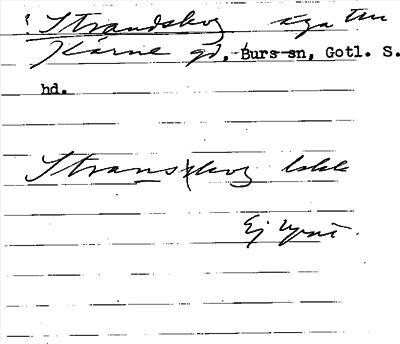 ! Strandskog äga till
Kärne gd, Burs sn, Gotl. S.
hd.
Stranskog lokk
Ej upst.